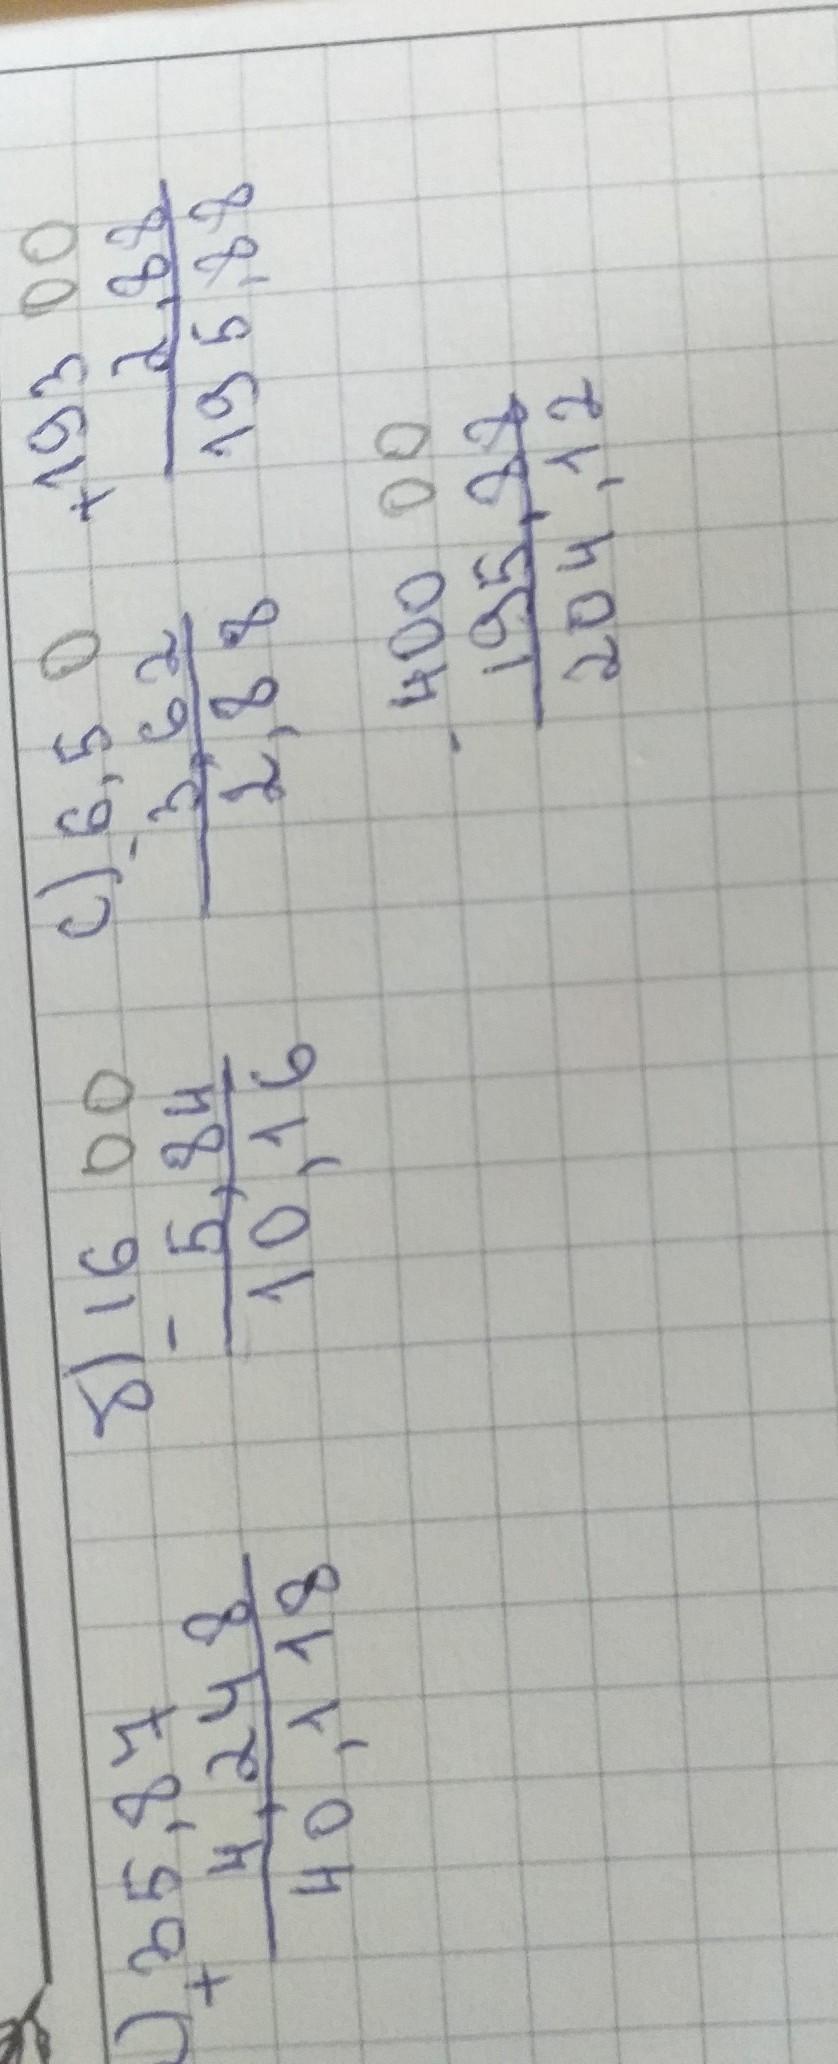 ) 35,87
+ 4,248
40,118
б) 16 00
- 5,84
10,16
с) 6,5 0
- 3,62
2,88
+193 00
2,88
195,88
-400 00
195,88
204,12